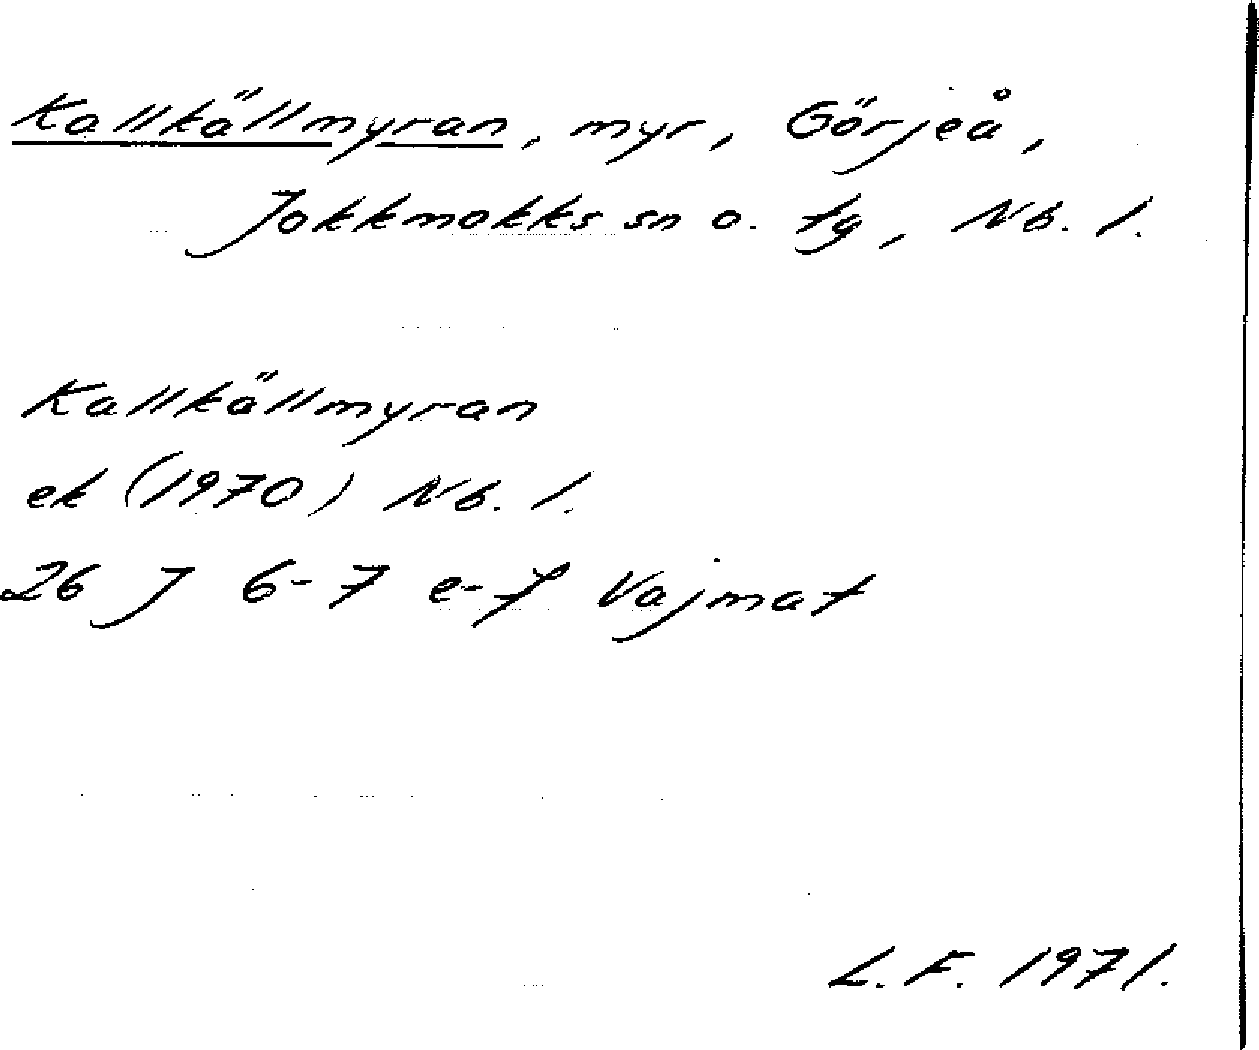 Kallkällmyran, myr, Görjeå,
Jokkmokks sn o. tg, Nb. l.
Kallkällmyran
ek (1970) Nb. l.
26 J 6-7 e-f Vajmat
L.F. 1971.